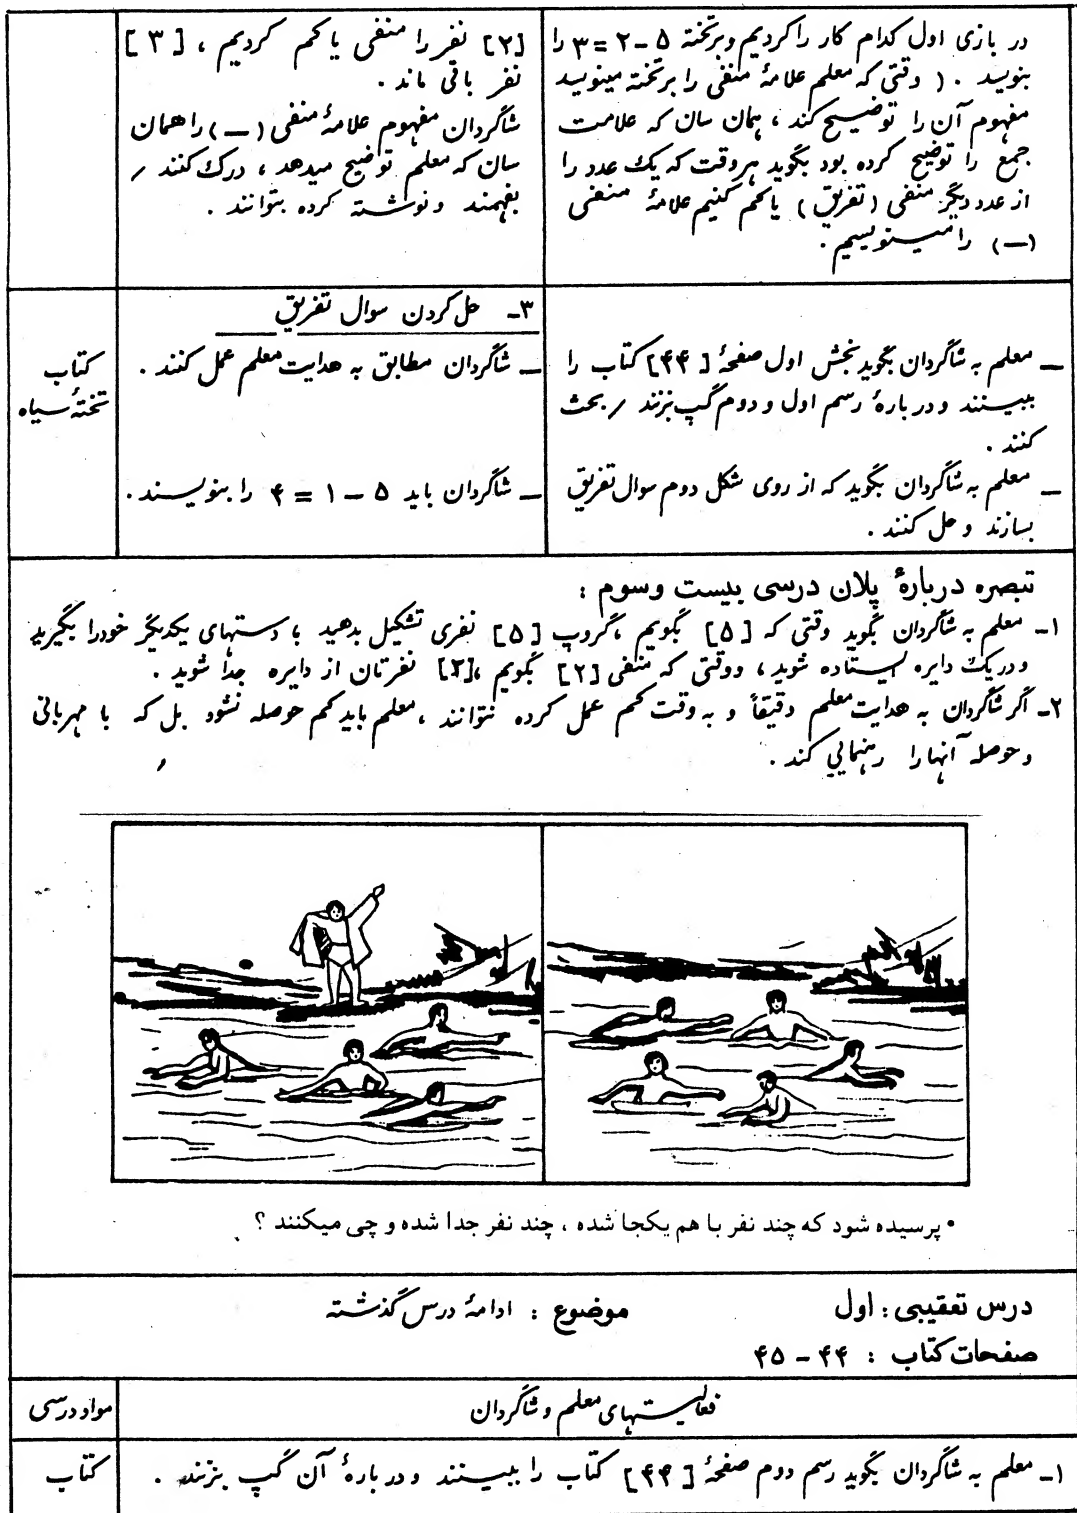 در بازی اول کدام کار را کردیم و برتخته ۵ - ۲ = ۳ را
بنویسد . ( وقتی که معلم علامهٔ منفی را برتخته مینویسد
مفهوم آن را توضیح کند ، همان سان که علامت
جمع را توضیح کرده بود بگوید هروقت که یك عدد را
از عدد دیگر منفی ( تفریق ) یا کم کنیم علامهٔ منفی
( — ) را مینویسیم .
[۲] نفر را منفی یا کم کردیم ، [ ۳ ]
نفر باقی ماند .
شاگردان مفهوم علامهٔ منفی ( — ) را همان
سان که معلم توضیح میدهد ، درك کنند /
بفهمند و نوشته کرده بتوانند .
۳ـ حل کردن سوال تفریق
ـ معلم به شاگردان بگوید بخش اول صفحهٔ [ ۴۴] کتاب را
ببینند و در بارهٔ رسم اول و دوم گپ بزنند / بحث
کنند .
ـ شاگردان مطابق به هدایت معلم عمل کنند .
کتاب
تختهٔ سیاه
ـ معلم به شاگردان بگوید که از روی شکل دوم سوال تفریق
بسازند و حل کنند .
ـ شاگردان باید ۵ - ۱ = ۴ را بنویسند .
تبصره دربارهٔ پلان درسی بیست وسوم :
۱ـ معلم به شاگردان بگوید وقتی که [۵] بگویم ،گروپ [۵] نفری تشکیل بدهید با دستهای یکدیگر خودرا بگیرید
و در یك دایره ایستاده شوید ، و وقتی که منفی [۲] بگویم ،[۲] نفرتان از دایره جدا شوید .
۲ـ اگر شاگردان به هدایت معلم دقیقاً و به وقت کم عمل کرده نتوانند ، معلم باید کم حوصله نشود بل که با مهربانی
و حوصله آنها را رهنمایی کند .
• پرسیده شود که چند نفر با هم یکجا شده ، چند نفر جدا شده و چی میکنند ؟
درس تعقیبی : اول موضوع : ادامهٔ درس گذشته
صفحات کتاب : ۴۴ - ۴۵
فعالیتهای معلم و شاگردان
مواد درسی
۱ـ معلم به شاگردان بگوید رسم دوم صفحهٔ [ ۴۴] کتاب را ببینند و در بارهٔ آن گپ بزنند .
کتاب